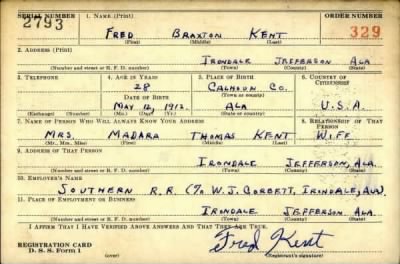 SERIAL NUMBER 1. NAME (Print) ORDER NUMBER
2793 FRED BRAXTON KENT 329
(First) (Middle) (Last)
2. ADDRESS (Print)
IRONDALE JEFFERSON ALA
(Number and street or R. F. D. number) (Town) (County) (State)
3. TELEPHONE 4. AGE IN YEARS 5. PLACE OF BIRTH 6. COUNTRY OF CITIZENSHIP
28 CALHOUN CO.
DATE OF BIRTH (Town or county)
MAY 12, 1912 ALA U.S.A.
(Exchange) (Number) (Mo.) (Day) (Yr.) (State or country)
7. NAME OF PERSON WHO WILL ALWAYS KNOW YOUR ADDRESS 8. RELATIONSHIP OF THAT PERSON
MRS. MADARA THOMAS KENT WIFE
(Mr., Mrs., Miss) (First) (Middle) (Last)
9. ADDRESS OF THAT PERSON
IRONDALE JEFFERSON, ALA.
(Number and street or R. F. D. number) (Town) (County) (State)
10. EMPLOYER'S NAME
SOUTHERN R.R. (% W.J. CORBETT, IRONDALE, ALA.)
11. PLACE OF EMPLOYMENT OR BUSINESS
IRONDALE JEFFERSON. ALA.
(Number and street or R. F. D. number) (Town) (County) (State)
I AFFIRM THAT I HAVE VERIFIED ABOVE ANSWERS AND THAT THEY ARE TRUE.
REGISTRATION CARD Fred Kent
D. S. S. Form 1 (over) (Registrant's signature)